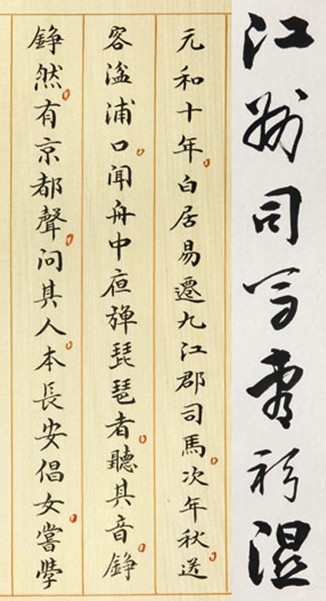 江州司马青衫湿
元和十年。白居易遷九江郡司馬。次年秋。送
客湓浦口。聞舟中夜彈琵琶者。聽其音。錚
錚然。有京都聲。問其人。本長安倡女。嘗學